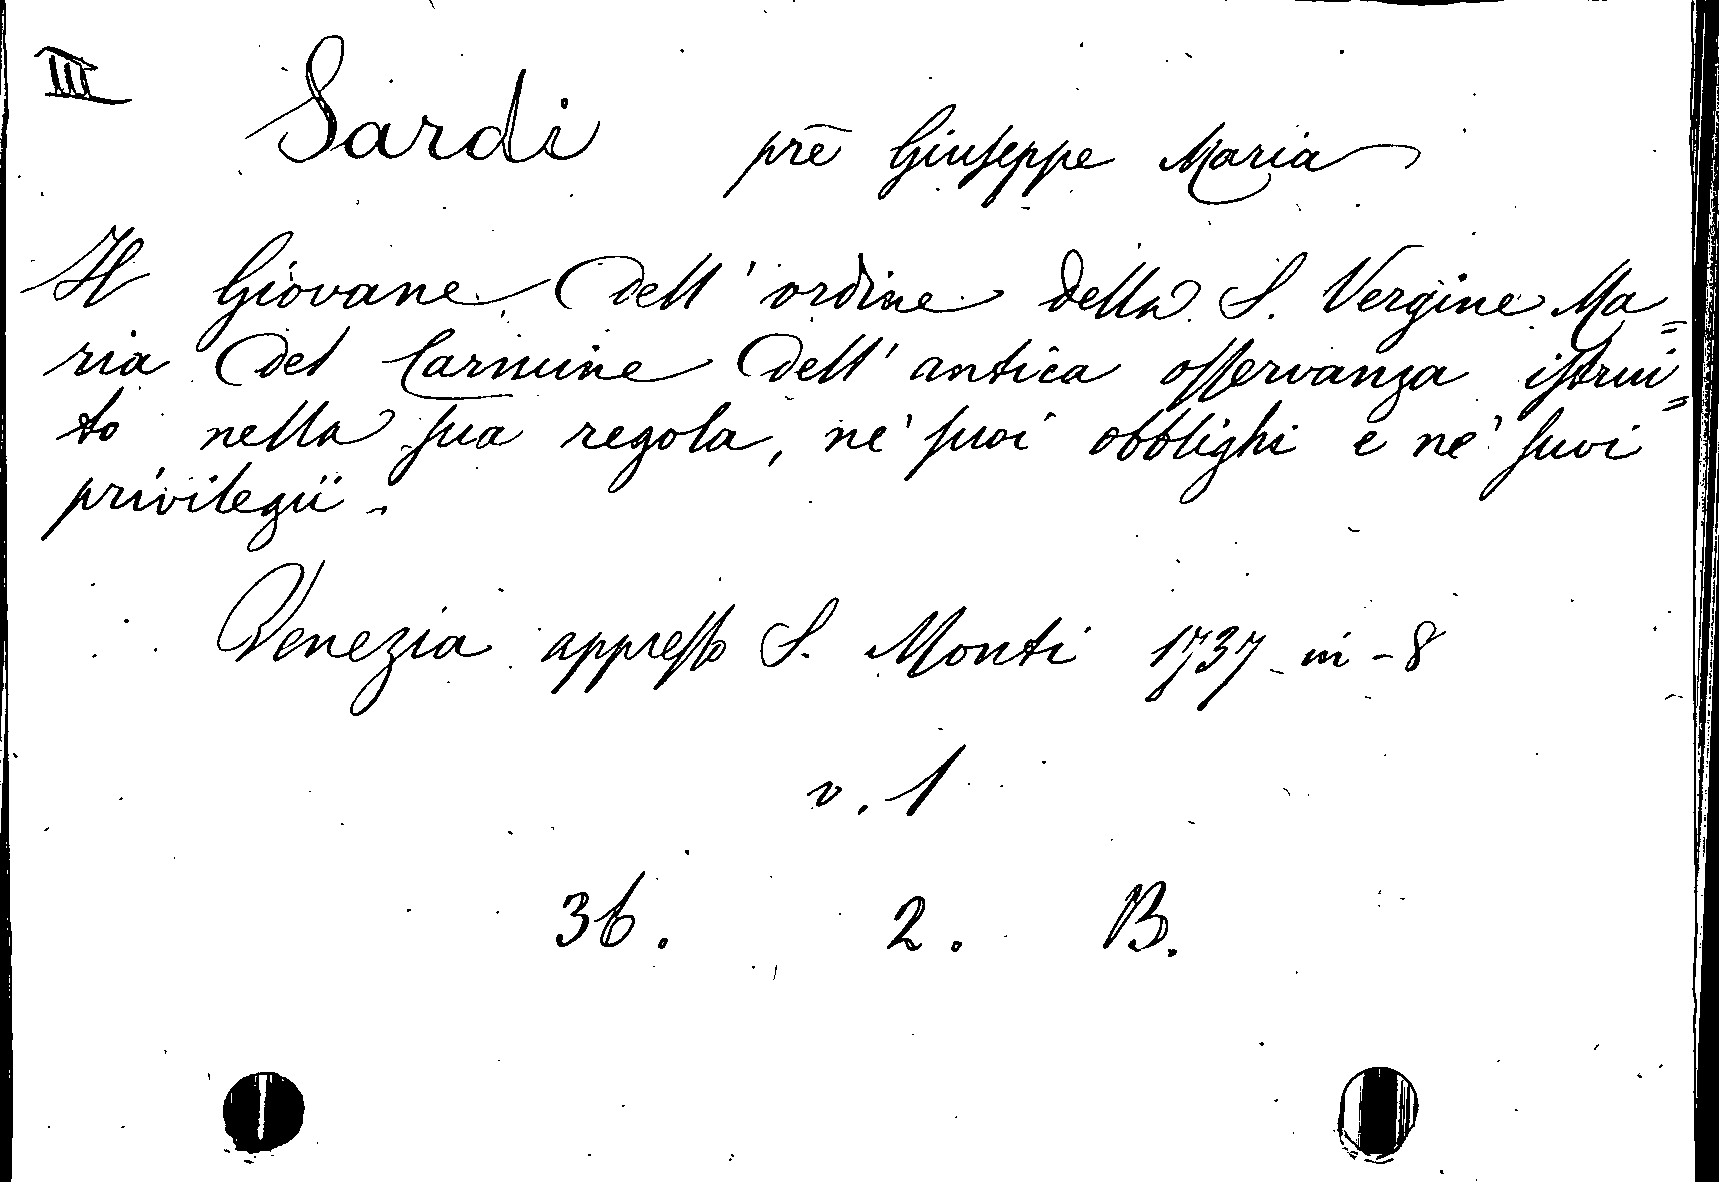 III
Sardi prē Giuseppe Maria
Il Giovane dell'ordine della S. Vergine Ma=
ria del Carmine dell'antica osservanza istrui=
to nella sua regola, ne' suoi obblighi e ne' suoi
privilegii.
Venezia appresso S. Monti 1737 in-8
v. 1
36. 2. B.